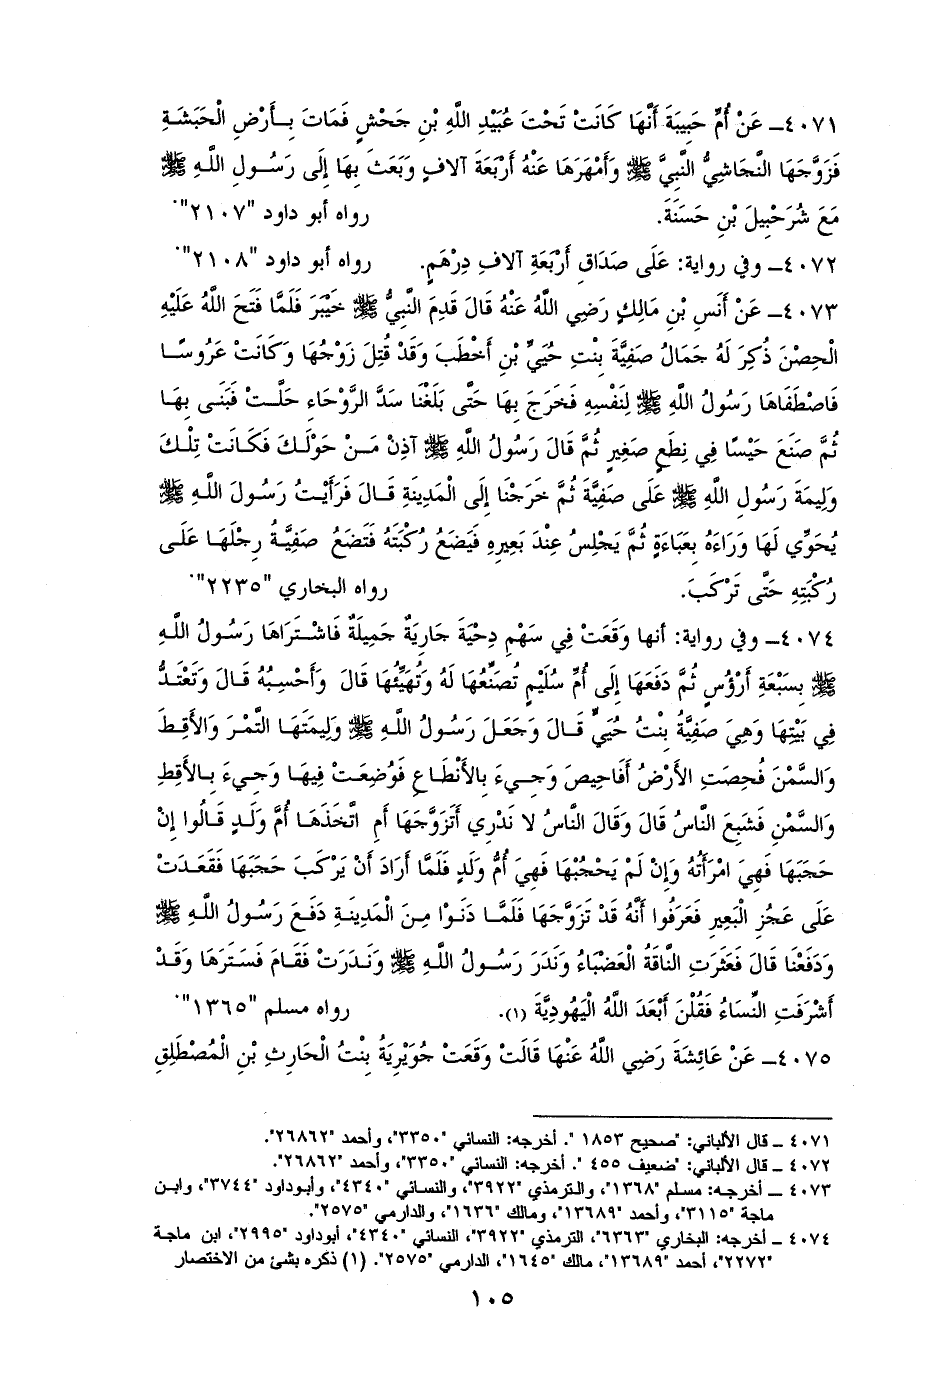 ٤٠٧١ـ عَنْ أُمِّ حَبِيبَةَ أَنَّهَا كَانَتْ تَحْتَ عُبَيْدِ اللَّهِ بْنِ جَحْشٍ فَمَاتَ بِـأَرْضِ الْحَبَشَةِ
فَزَوَّجَهَا النَّجَاشِيُّ النَّبِيَّ ﷺ وَأَمْهَرَهَا عَنْهُ أَرْبَعَةَ آلافٍ وَبَعَثَ بِهَا إِلَى رَسُـولِ اللَّـهِ ﷺ
مَعَ شُرَحْبِيلَ بْنِ حَسَنَةَ. رواه أبو داود "٢١٠٧".
٤٠٧٢ـ وفي رواية: عَلَى صَدَاقِ أَرْبَعَةِ آلافِ دِرْهَمٍ. رواه أبو داود "٢١٠٨".
٤٠٧٣ـ عَنْ أَنَسِ بْنِ مَالِكٍ رَضِي اللَّهُ عَنْهُ قَالَ قَدِمَ النَّبِيُّ ﷺ خَيْبَرَ فَلَمَّا فَتَحَ اللَّهُ عَلَيْهِ
الْحِصْنَ ذُكِرَ لَهُ جَمَالُ صَفِيَّةَ بِنْتِ حُيَيِّ بْنِ أَخْطَبَ وَقَدْ قُتِلَ زَوْجُهَا وَكَانَتْ عَرُوسًـا
فَاصْطَفَاهَا رَسُولُ اللَّهِ ﷺ لِنَفْسِهِ فَخَرَجَ بِهَا حَتَّى بَلَغْنَا سَدَّ الرَّوْحَاءِ حَلَّـتْ فَبَنَـى بِهَـا
ثُمَّ صَنَعَ حَيْسًا فِي نِطَعٍ صَغِيرٍ ثُمَّ قَالَ رَسُولُ اللَّهِ ﷺ آذِنْ مَـنْ حَوْلَـكَ فَكَـانَتْ تِلْـكَ
وَلِيمَةَ رَسُولِ اللَّهِ ﷺ عَلَى صَفِيَّةَ ثُمَّ خَرَجْنَا إِلَى الْمَدِينَةِ قَـالَ فَرَأَيْـتُ رَسُـولَ اللَّـهِ ﷺ
يُحَوِّي لَهَا وَرَاءَهُ بِعَبَاءَةٍ ثُمَّ يَجْلِسُ عِنْدَ بَعِيرِهِ فَيَضَعُ رُكْبَتَهُ فَتَضَعُ صَفِيَّـةُ رِجْلَهَـا عَلَـى
رُكْبَتِهِ حَتَّى تَرْكَبَ. رواه البخاري "٢٢٣٥".
٤٠٧٤ـ وفي رواية: أنها وَقَعَتْ فِي سَهْمِ دِحْيَةَ جَارِيَةٌ جَمِيلَةٌ فَاشْـتَرَاهَا رَسُـولُ اللَّـهِ
ﷺ بِسَبْعَةِ أَرْؤُسٍ ثُمَّ دَفَعَهَا إِلَى أُمِّ سُلَيْمٍ تُصَنِّعُهَا لَهُ وَتُهَيِّئُهَا قَالَ وَأَحْسِبُهُ قَالَ وَتَعْتَـدُّ
فِي بَيْتِهَا وَهِيَ صَفِيَّةُ بِنْتُ حُيَيٍّ قَـالَ وَجَعَلَ رَسُـولُ اللَّـهِ ﷺ وَلِيمَتَهَـا التَّمْـرَ وَالأَقِـطَ
وَالسَّمْنَ فُحِصَتِ الأَرْضُ أَفَاحِيصَ وَجِـيءَ بِالأَنْطَـاعِ فَوُضِعَـتْ فِيهَـا وَجِـيءَ بِـالأَقِطِ
وَالسَّمْنِ فَشَبِعَ النَّاسُ قَالَ وَقَالَ النَّاسُ لا نَدْرِي أَتَزَوَّجَهَا أَمِ اتَّخَذَهَـا أُمَّ وَلَـدٍ قَـالُوا إِنْ
حَجَبَهَا فَهِيَ امْرَأَتُهُ وَإِنْ لَمْ يَحْجُبْهَا فَهِيَ أُمُّ وَلَدٍ فَلَمَّا أَرَادَ أَنْ يَرْكَبَ حَجَبَهَا فَقَعَـدَتْ
عَلَى عَجُزِ الْبَعِيرِ فَعَرَفُوا أَنَّهُ قَدْ تَزَوَّجَهَا فَلَمَّـا دَنَـوْا مِـنَ الْمَدِينَـةِ دَفَـعَ رَسُـولُ اللَّـهِ ﷺ
وَدَفَعْنَا قَالَ فَعَثَرَتِ النَّاقَةُ الْعَضْبَاءُ وَنَدَرَ رَسُـولُ اللَّـهِ ﷺ وَنَـدَرَتْ فَقَامَ فَسَتَرَهَا وَقَـدْ
أَشْرَفَتِ النِّسَاءُ فَقُلْنَ أَبْعَدَ اللَّهُ الْيَهُودِيَّةَ (١). رواه مسلم "١٣٦٥".
٤٠٧٥ـ عَنْ عَائِشَةَ رَضِي اللَّهُ عَنْهَا قَالَتْ وَقَعَتْ جُوَيْرِيَةُ بِنْتُ الْحَارِثِ بْنِ الْمُصْطَلِقِ
٤٠٧١ ـ قال الألباني: "صحيح ١٨٥٣ ". أخرجه: النسائي "٣٣٥٠"، وأحمد "٢٦٨٦٢".
٤٠٧٢ ـ قال الألباني: "ضعيف ٤٥٥ ". أخرجه: النسائي "٣٣٥٠"، وأحمد "٢٦٨٦٢".
٤٠٧٣ ـ أخرجه: مسلم "١٣٦٨"، والترمذي "٣٩٢٢"، والنسائي "٤٣٤٠"، وأبوداود "٣٧٤٤"، وابـن
ماجة "٣١١٥"، وأحمد "١٣٦٨٩"، ومالك "١٦٣٦"، والدارمي "٢٥٧٥".
٤٠٧٤ ـ أخرجه: البخاري "٦٣٦٣"، الترمذي "٣٩٢٢"، النسائي "٤٣٤٠"، أبوداود "٢٩٩٥"، ابن ماجـة
"٢٢٧٢"، أحمد "١٣٦٨٩"، مالك "١٦٤٥"، الدارمي "٢٥٧٥". (١) ذكره بشئ من الاختصار
١٠٥